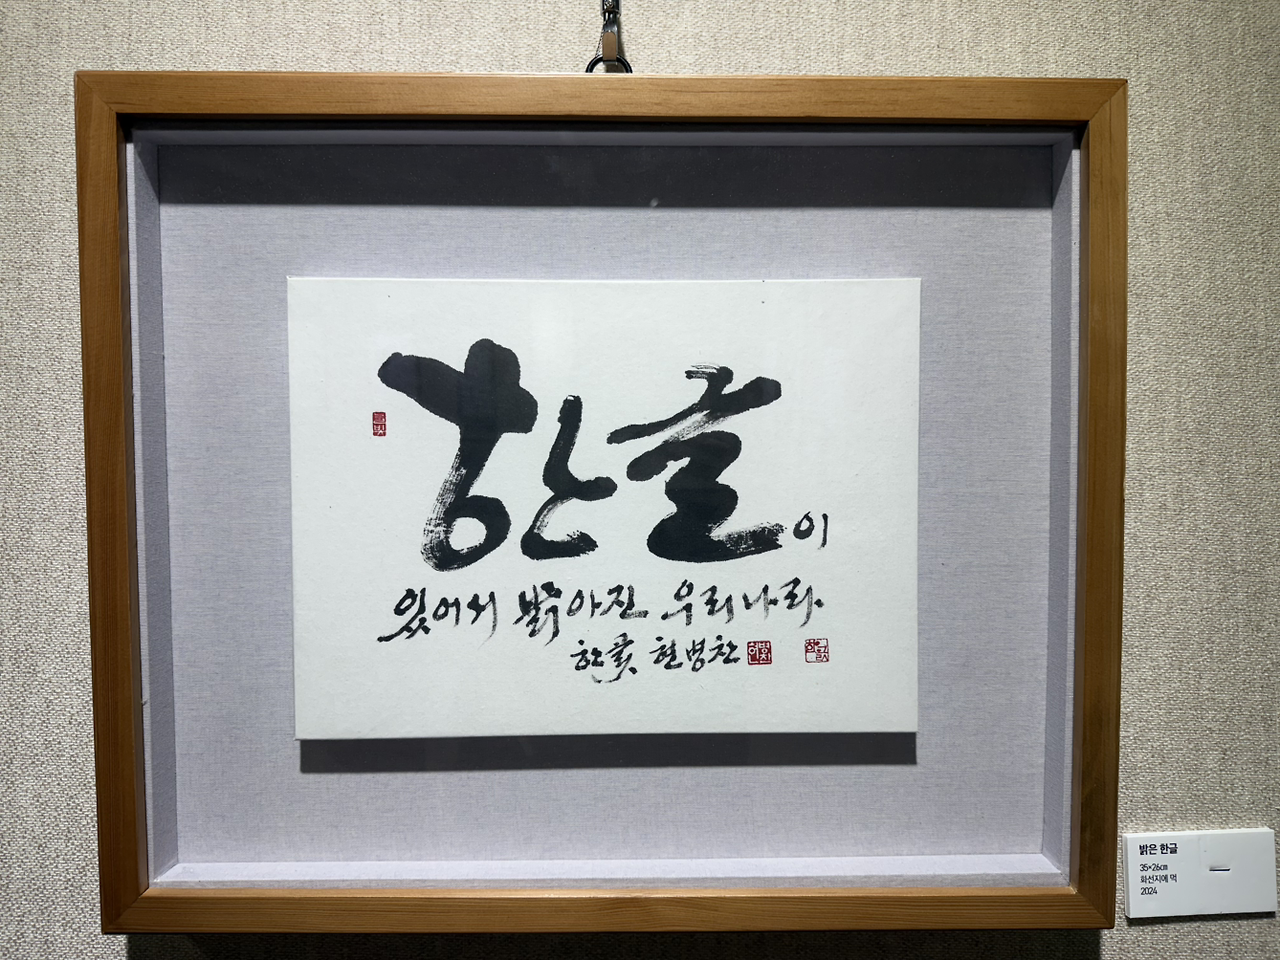 한글이
있어서 밝아진 우리나라.
한빛 현병찬
밝은 한글
35×26㎝
화선지에 먹
2024